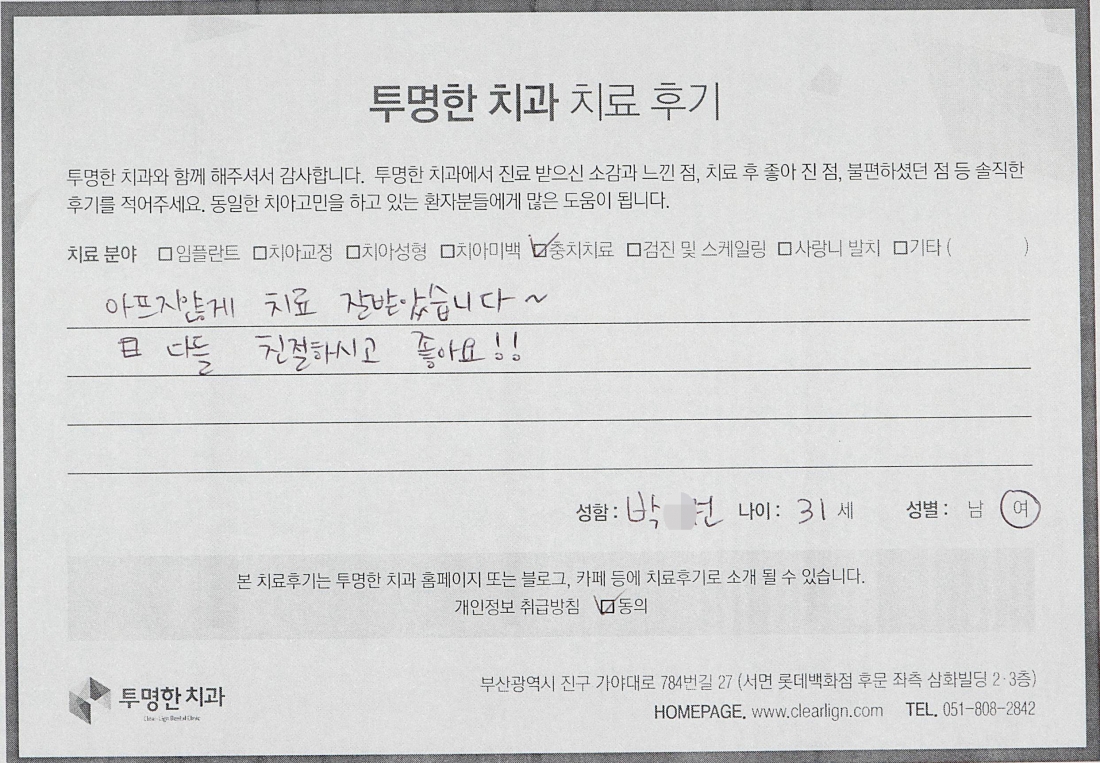 투명한 치과 치료 후기
투명한 치과와 함께 해주셔서 감사합니다. 투명한 치과에서 진료 받으신 소감과 느낀 점, 치료 후 좋아 진 점, 불편하셨던 점 등 솔직한
후기를 적어주세요. 동일한 치아고민을 하고 있는 환자분들에게 많은 도움이 됩니다.
치료 분야 □임플란트 □치아교정 □치아성형 □치아미백 ☑충치치료 □검진 및 스케일링 □사랑니 발치 □기타 ( )
아프지않게 치료 잘받았습니다~
다들 친절하시고 좋아요!!
성함: 박 나이: 31 세 성별: 남 여
본 치료후기는 투명한 치과 홈페이지 또는 블로그, 카페 등에 치료후기로 소개 될 수 있습니다.
개인정보 취급방침 ☑동의
투명한 치과
Clear-Lign Dental Clinic
부산광역시 진구 가야대로 784번길 27 (서면 롯데백화점 후문 좌측 삼화빌딩 2·3층)
HOMEPAGE. www.clearlign.com TEL. 051-808-2842